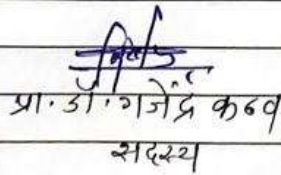 प्रा. डॉ. गजेंद्र कढव
सदस्य